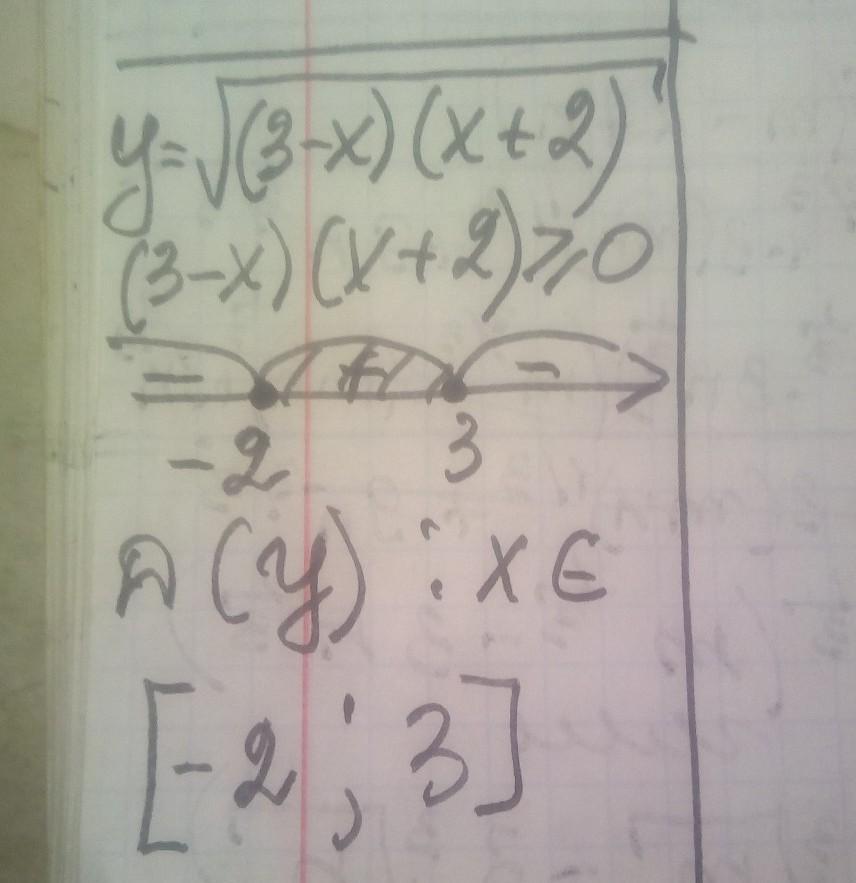 y=√(3-x)(x+2)
(3-x)(x+2)⩾0
- + -
-2 3
D(y): x∈
[-2; 3]